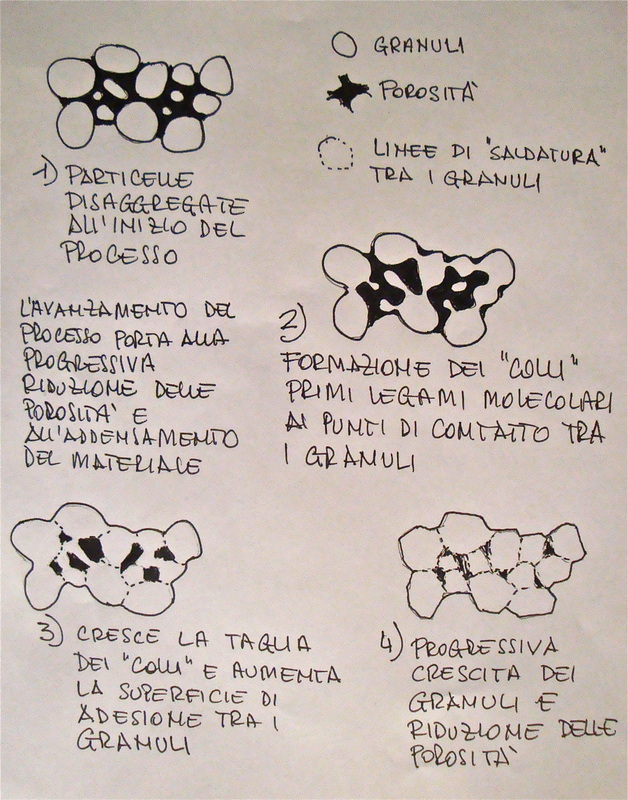 GRANULI
POROSITÀ
LINEE DI "SALDATURA"
TRA I GRANULI
1) PARTICELLE
DISAGGREGATE
ALL'INIZIO DEL
PROCESSO
L'AVANZAMENTO DEL
PROCESSO PORTA ALLA
PROGRESSIVA
RIDUZIONE DELLE
POROSITÀ E
ALL'ADDENSAMENTO
DEL MATERIALE
2)
FORMAZIONE DEI "COLLI"
PRIMI LEGAMI MOLECOLARI
AI PUNTI DI CONTATTO TRA
I GRANULI
3) CRESCE LA TAGLIA
DEI "COLLI" E AUMENTA
LA SUPERFICIE DI
ADESIONE TRA I
GRANULI
4) PROGRESSIVA
CRESCITA DEI
GRANULI E
RIDUZIONE DELLE
POROSITÀ